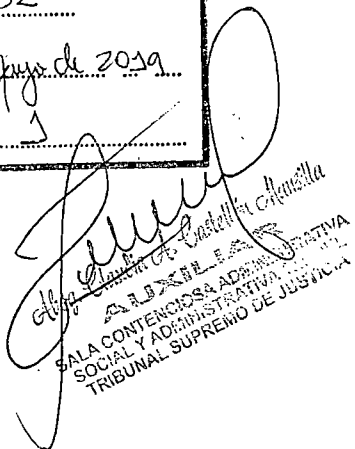 de 2019
1
Claudia A. Castellón Mansilla
AUXILIAR
SALA CONTENCIOSA ADMINISTRATIVA
SOCIAL Y ADMINISTRATIVA
TRIBUNAL SUPREMO DE JUSTICIA